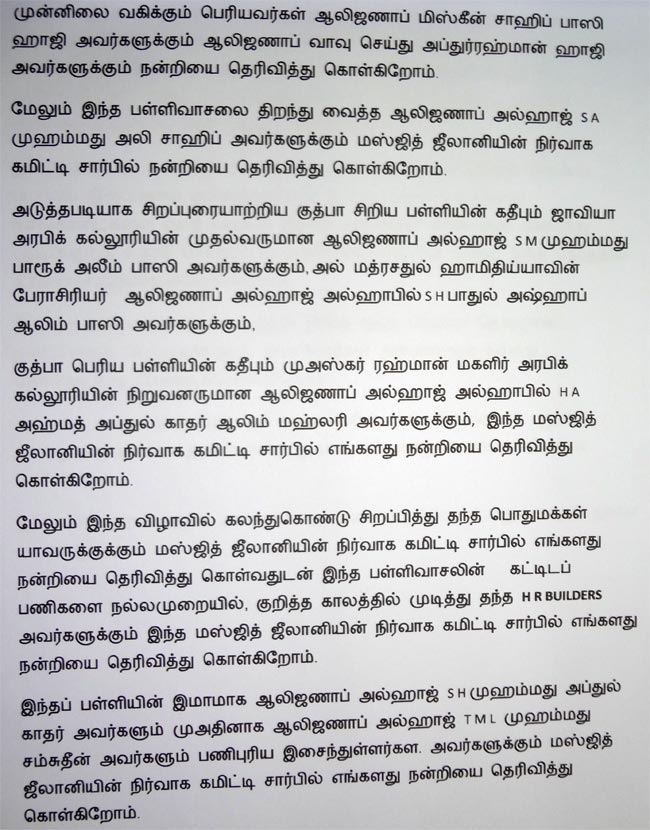 முன்னிலை வகிக்கும் பெரியவர்கள் ஆலிஜனாப் மிஸ்கீன் சாஹிப் பாஸி
ஹாஜி அவர்களுக்கும் ஆலிஜனாப் வாவு செய்து அப்துர்ரஹ்மான் ஹாஜி
அவர்களுக்கும் நன்றியை தெரிவித்து கொள்கிறோம்.
மேலும் இந்த பள்ளிவாசலை திறந்து வைத்த ஆலிஜனாப் அல்ஹாஜ் SA
முஹம்மது அலி சாஹிப் அவர்களுக்கும் மஸ்ஜித் ஜீலானியின் நிர்வாக
கமிட்டி சார்பில் நன்றியை தெரிவித்து கொள்கிறோம்.
அடுத்தபடியாக சிறப்புரையாற்றிய குத்பா சிறிய பள்ளியின் கதீபும் ஜாவியா
அரபிக் கல்லூரியின் முதல்வருமான ஆலிஜனாப் அல்ஹாஜ் SM முஹம்மது
பாரூக் அலீம் பாஸி அவர்களுக்கும், அல் மத்ரசதுல் ஹாமிதிய்யாவின்
பேராசிரியர் ஆலிஜனாப் அல்ஹாஜ் அல்ஹாபில் SH பாதுல் அஷ்ஹாப்
ஆலிம் பாஸி அவர்களுக்கும்,
குத்பா பெரிய பள்ளியின் கதீபும் முஅஸ்கர் ரஹ்மான் மகளிர் அரபிக்
கல்லூரியின் நிறுவனருமான ஆலிஜனாப் அல்ஹாஜ் அல்ஹாபில் HA
அஹ்மத் அப்துல் காதர் ஆலிம் மஹ்லரி அவர்களுக்கும், இந்த மஸ்ஜித்
ஜீலானியின் நிர்வாக கமிட்டி சார்பில் எங்களது நன்றியை தெரிவித்து
கொள்கிறோம்.
மேலும் இந்த விழாவில் கலந்துகொண்டு சிறப்பித்து தந்த பொதுமக்கள்
யாவருக்குக்கும் மஸ்ஜித் ஜீலானியின் நிர்வாக கமிட்டி சார்பில் எங்களது
நன்றியை தெரிவித்து கொள்வதுடன் இந்த பள்ளிவாசலின் கட்டிடப்
பணிகளை நல்லமுறையில், குறித்த காலத்தில் முடித்து தந்த HR BUILDERS
அவர்களுக்கும் இந்த மஸ்ஜித் ஜீலானியின் நிர்வாக கமிட்டி சார்பில் எங்களது
நன்றியை தெரிவித்து கொள்கிறோம்.
இந்தப் பள்ளியின் இமாமாக ஆலிஜனாப் அல்ஹாஜ் SH முஹம்மது அப்துல்
காதர் அவர்களும் முஅதினாக ஆலிஜனாப் அல்ஹாஜ் TML முஹம்மது
சம்சுதீன் அவர்களும் பணிபுரிய இசைந்துள்ளர்கள. அவர்களுக்கும் மஸ்ஜித்
ஜீலானியின் நிர்வாக கமிட்டி சார்பில் எங்களது நன்றியை தெரிவித்து
கொள்கிறோம்.